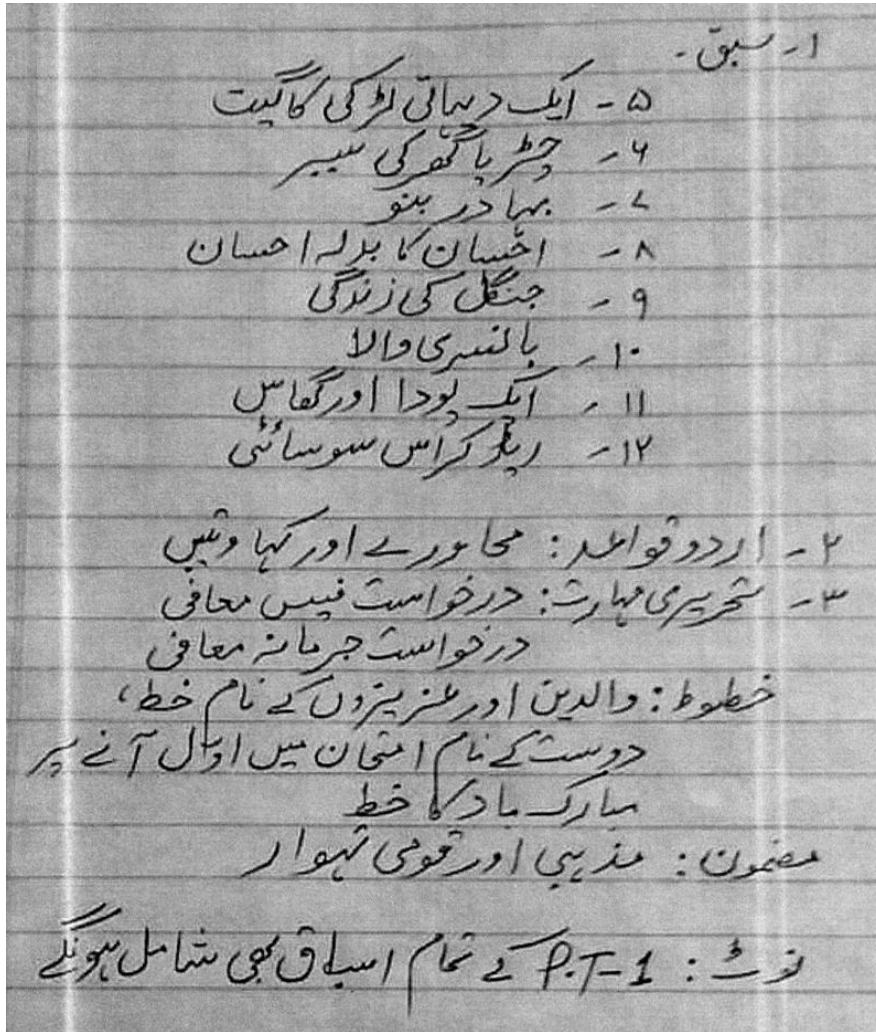 ۱۔ سبق۔
۵ - ایک دیہاتی لڑکی کا گیت
۶ - چڑیا گھر کی سیر
۷ - بہادر بنو
۸ - احسان کا بدلہ احسان
۹ - جنگل کی زندگی
۱۰ - بانسری والا
۱۱ - ایک پودا اور گھاس
۱۲ - ریڈ کراس سوسائٹی
۲ - اردو قواعد : محاورے اور کہاوتیں
۳ - تحریری مہارت : درخواست فیس معافی
درخواست جرمانہ معافی
خطوط : والدین اور عزیزوں کے نام خط،
دوست کے نام امتحان میں اوّل آنے پر
مبارک باد کا خط
مضمون : مذہبی اور قومی تہوار
نوٹ : P.T-1 کے تمام اسباق بھی شامل ہونگے